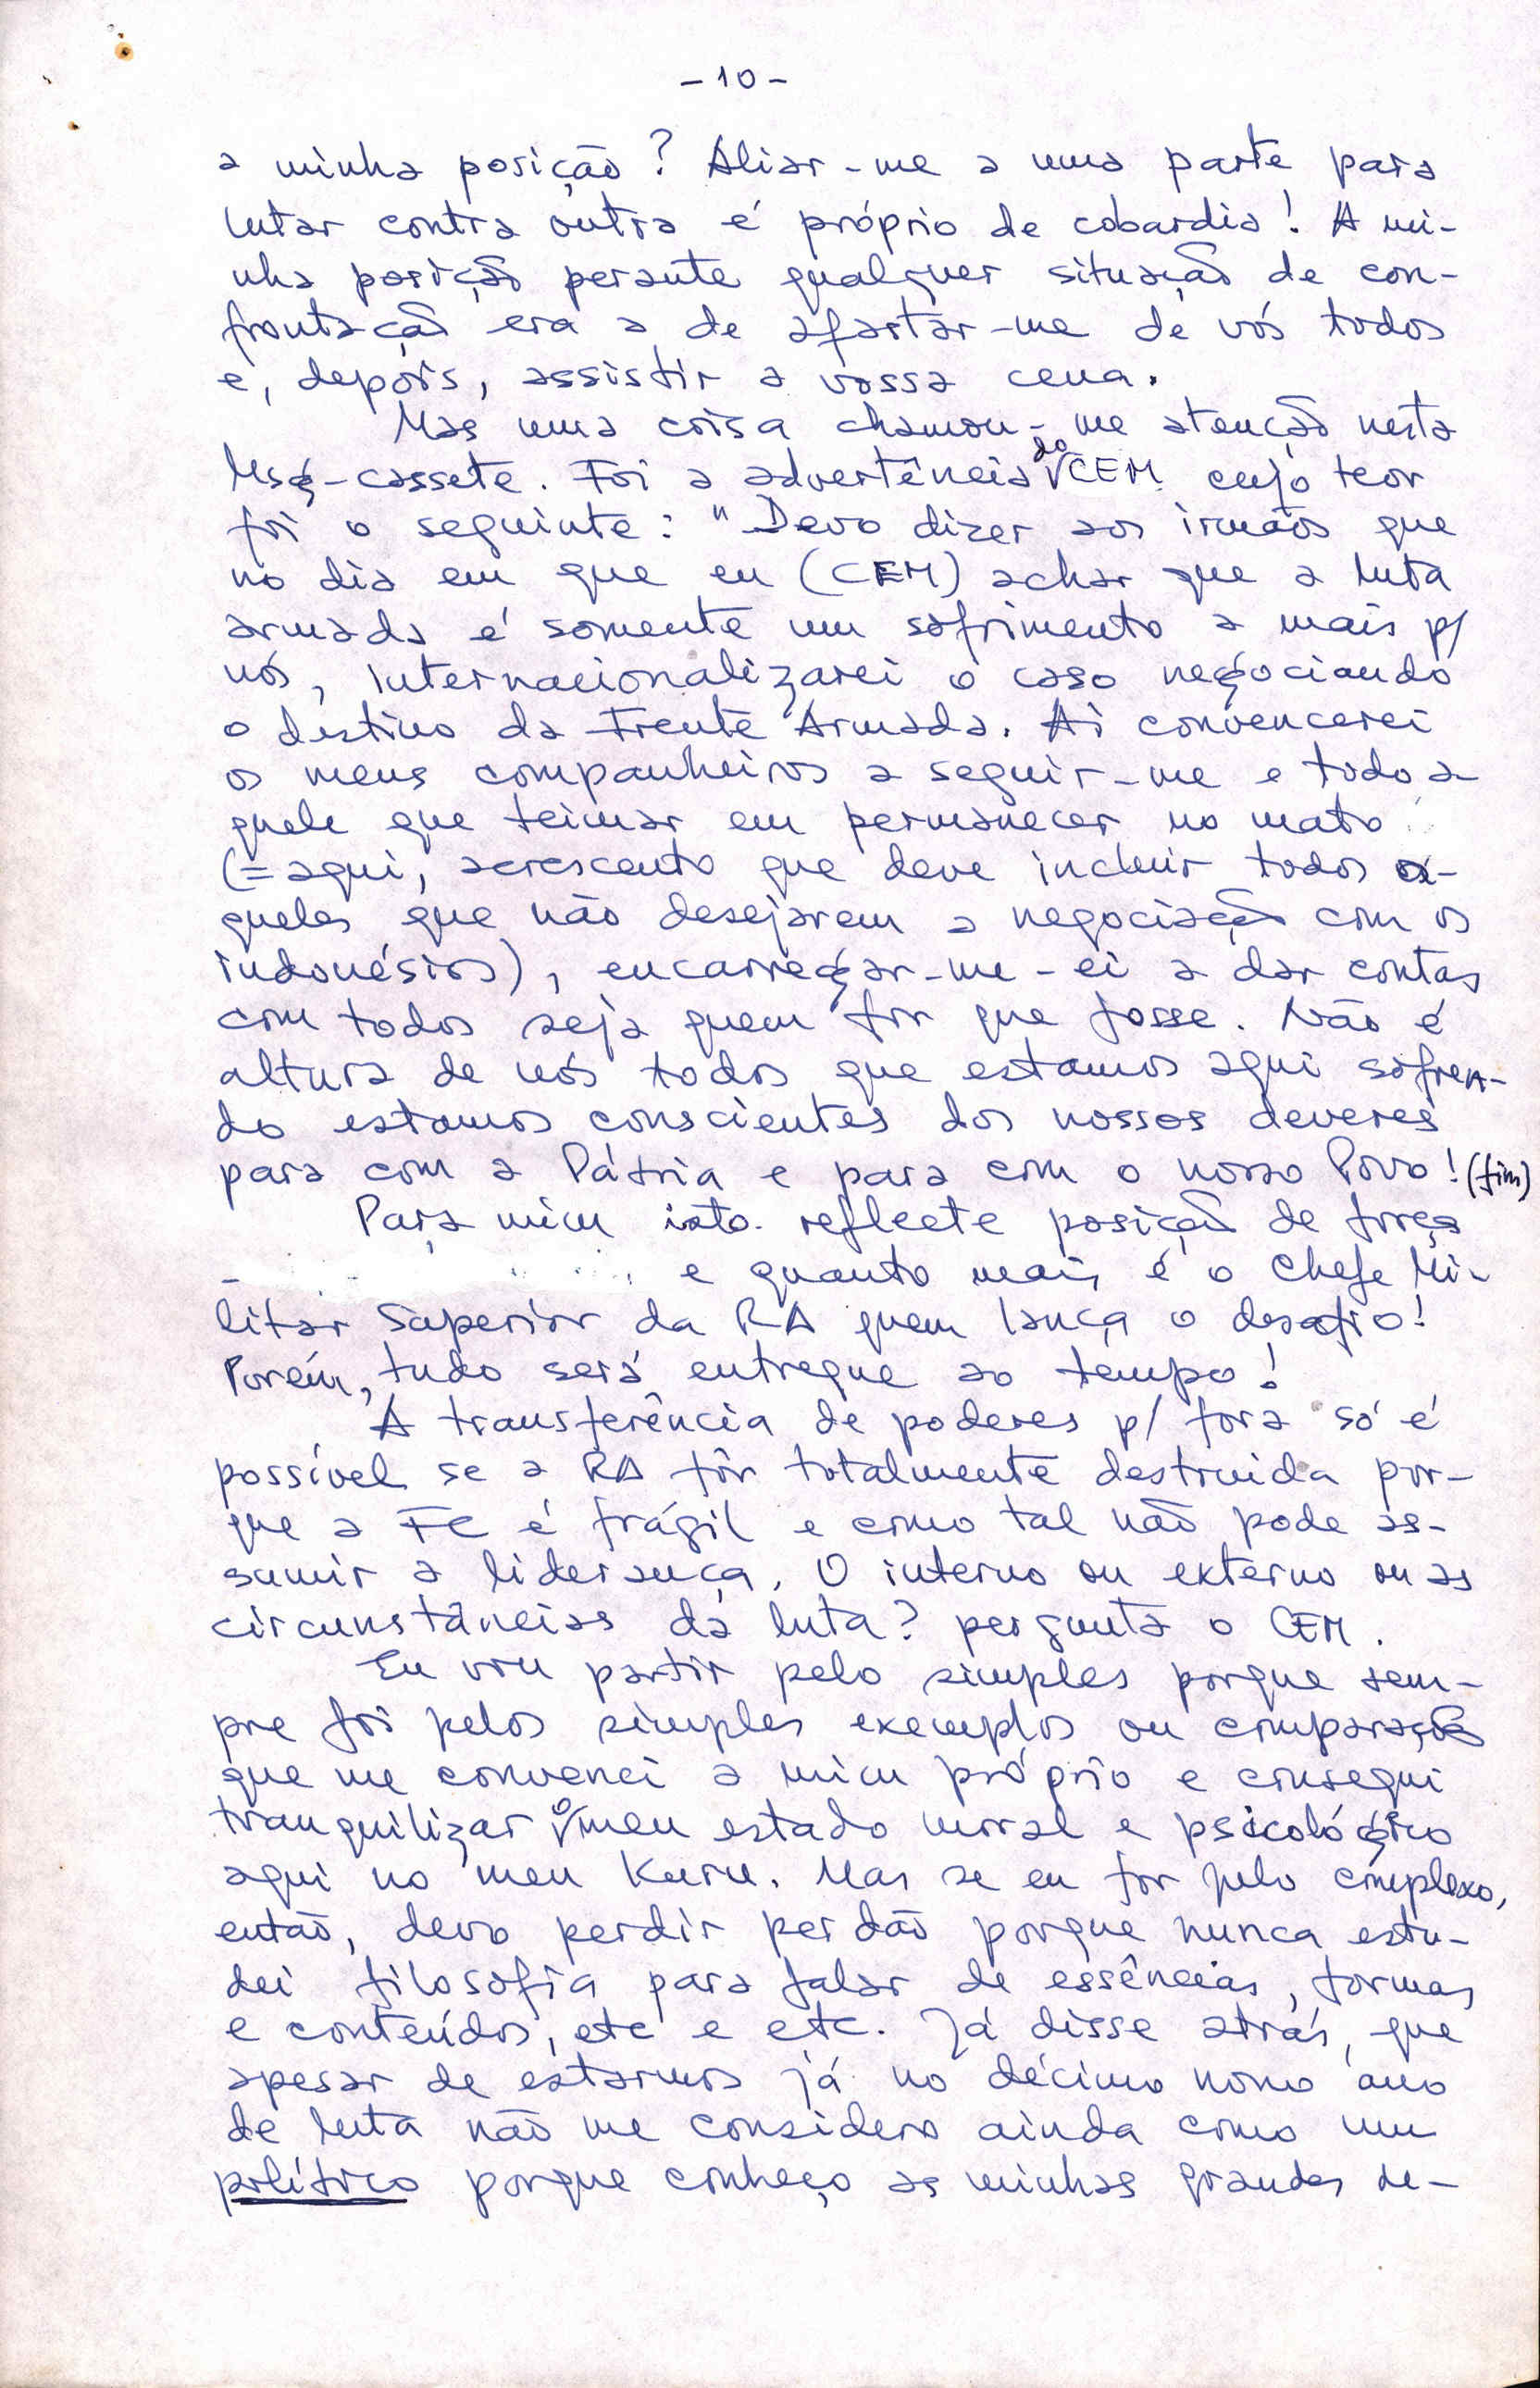 - 10 -
a minha posição? Aliar-me a uma parte para
lutar contra outra é próprio de cobardia! A mi-
nha posição perante qualquer situação de con-
frontação era a de afastar-me de vós todos
e, depois, assistir a vossa cena.
Mas uma coisa chamou-me atenção nesta
Msg-cassete. Foi a advertência do CEM cujo teor
foi o seguinte: "Devo dizer aos irmãos que
no dia em que eu (CEM) achar que a luta
armada é somente um sofrimento a mais p/
nós, internacionalizarei o caso negociando
o destino da Frente Armada. Aí convencerei
os meus companheiros a seguir-me e todo a-
quele que teimar em permanecer no mato
(= aqui, acrescento que deve incluir todos a-
queles que não desejarem a negociação com os
indonésios), encarregar-me-ei a dar contas
com todos seja quem for que fosse. Não é
altura de nós todos que estamos aqui sofren-
do estamos conscientes dos nossos deveres
para com a Pátria e para com o nosso Povo! (fim)
Para mim isto reflecte posição de força
e quanto mais é o Chefe Mi-
litar Superior da RA quem lança o desafio!
Porém, tudo será entregue ao tempo!
A transferência de poderes p/ fora só é
possível se a RA fôr totalmente destruida por-
que a FC é frágil e como tal não pode as-
sumir a liderança. O interno ou externo ou as
circunstâncias da luta? pergunta o CEM.
Eu vou partir pelo simples porque sem-
pre foi pelos simples exemplos ou comparações
que me convenci a mim próprio e consegui
tranquilizar o meu estado moral e psicológico
aqui no meu Kuru. Mas se eu for pelo complexo,
então, devo perdir perdão porque nunca estu-
dei filosofia para falar de essências, formas
e conteúdos, etc e etc. Já disse atrás, que
apesar de estarmos já no décimo nono ano
de luta não me considero ainda como um
político porque conheço as minhas grandes de-